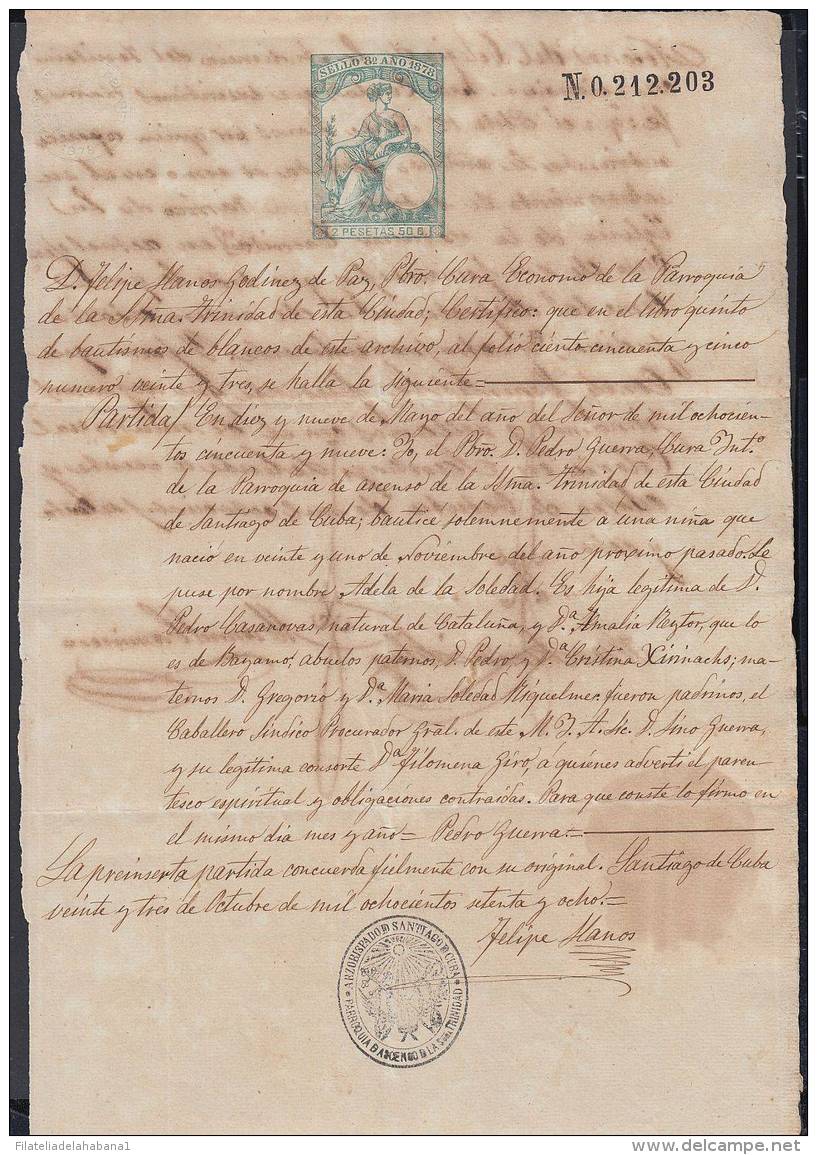 SELLO 8º AÑO 1878
2 PESETAS 50 C.
N.0.212.203
D. Felipe Llanos Godinez de Paz, Pbro. Cura Economo de la Parroquia
de la Stma. Trinidad de esta Ciudad; Certifico: que en el libro quinto
de bautismos de blancos de este archivo, al folio ciento cincuenta y cinco
numero veinte y tres, se halla la siguiente=
Partida/ En diez y nueve de Mayo del año del Señor de mil ochocien-
tos cincuenta y nueve: Yo, el Pbro. D. Pedro Guerra, Cura Int.º
de la Parroquia de ascenso de la Stma. Trinidad de esta Ciudad
de Santiago de Cuba; bautice solemnemente a una niña que
nació en veinte y uno de Noviembre del año proximo pasado. Le
puse por nombre Adela de la Soledad. Es hija legitima de D.
Pedro Casanovas, natural de Cataluña, y D.ª Amalia Reytor, que lo
es de Bayamo: abuelos paternos, D. Pedro, y D.ª Cristina Xirinachs; ma-
ternos D. Gregorio y D.ª Maria Soledad Miquelme: fueron padrinos, el
Caballero Sindico Procurador Gral. de este M. Y. A. Lic. D. Lino Guerra,
y su legitima consorte D.ª Filomena Giro, a quiénes adverti el paren-
tesco espiritual y obligaciones contraidas. Para que conste lo firmo en
el mismo dia mes y año= Pedro Guerra.=
La preinserta partida concuerda fielmente con su original. Santiago de Cuba
veinte y tres de Octubre de mil ochocientos setenta y ocho.=
Felipe Llanos
ARZOBISPADO D SANTIAGO D CUBA
PARROQUIA D ASCENSO D LA TRINIDAD
Filateliadelahabana1
delcampe.net